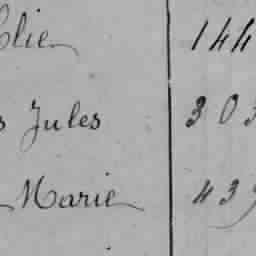 Elie 144
s Jules 303
Marie 439